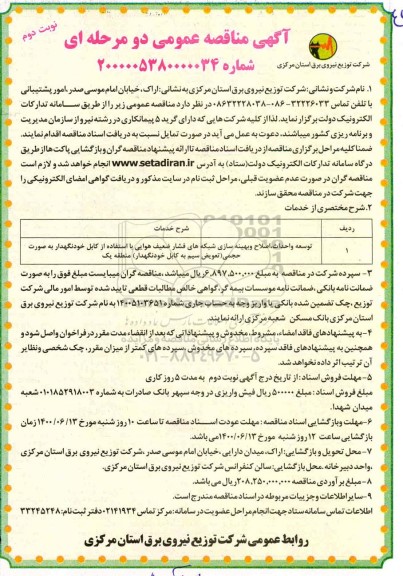 نوبت دوم
آگهی مناقصه عمومی دو مرحله ای
شماره ۲۰۰۰۰۰۵۳۸۰۰۰۰۰۳۴
شرکت توزیع نیروی برق استان مرکزی
۱. نام شرکت و نشانی: شرکت توزیع نیروی برق استان مرکزی به نشانی: اراک، خیابان امام موسی صدر، امور پشتیبانی
با تلفن تماس ۳۲۲۲۶۰۳۳-۰۸۶ - ۰۸۶۳۲۲۲۸۰۳۸ در نظر دارد مناقصه عمومی زیر را از طریق سامانه تدارکات
الکترونیک دولت برگزار نماید. لذا از کلیه شرکت هایی که دارای گرید ۵ پیمانکاری در رشته نیرو از سازمان مدیریت
و برنامه ریزی کشور میباشند، دعوت به عمل می آید در صورت تمایل نسبت به دریافت اسناد مناقصه اقدام نمایند.
ضمنا کلیه مراحل برگزاری مناقصه از دریافت اسناد مناقصه تا ارائه پیشنهاد مناقصه گران و بازگشایی پاکت ها از طریق
درگاه سامانه تدارکات الکترونیک دولت (ستاد) به آدرس www.setadiran.ir انجام خواهد شد و لازم است
مناقصه گران در صورت عدم عضویت قبلی، مراحل ثبت نام در سایت مذکور و دریافت گواهی امضای الکترونیکی را
جهت شرکت در مناقصه محقق سازند.
۲. شرح مختصری از خدمات
ردیف شرح خدمات
۱ توسعه واحداث، اصلاح وبهینه سازی شبکه های فشار ضعیف هوایی با استفاده از کابل خودنگهدار به صورت
حجمی (تعویض سیم به کابل خودنگهدار) منطقه یک
۳- سپرده شرکت در مناقصه به مبلغ ۶,۸۹۷,۵۰۰,۰۰۰ ریال میباشد، مناقصه گران میبایست مبلغ فوق را به صورت
ضمانت نامه بانکی، ضمانت نامه موسسات بیمه گر، گواهی خالص مطالبات قطعی تایید شده توسط امور مالی شرکت
توزیع، چک تضمین شده بانکی یا واریز وجه به حساب جاری شماره ۱۴۰۰۵۱۰۳۶۵۱ به نام شرکت توزیع نیروی برق
استان مرکزی بانک مسکن شعبه مرکزی ارائه نمایند.
۴- به پیشنهادهای فاقد امضاء، مشروط، مخدوش و پیشنهاداتی که بعد از انقضاء مدت مقرر در فراخوان واصل شود و
همچنین به پیشنهادهای فاقد سپرده، سپرده های مخدوش، سپرده های کمتر از میزان مقرر، چک شخصی و نظایر
آن ترتیب اثر داده نخواهد شد.
۵- مهلت فروش اسناد: از تاریخ درج آگهی نوبت دوم به مدت ۵ روز کاری
مبلغ فروش اسناد: مبلغ ۵۰۰۰۰۰ ریال فیش واریزی در وجه سپهر بانک صادرات به شماره ۰۱۰۱۸۵۲۹۱۸۰۰۳ شعبه
میدان شهدا.
۶- مهلت وبازگشایی اسناد مناقصه: مهلت عودت اسناد مناقصه تا ساعت ۱۰ روز شنبه مورخ ۱۴۰۰/۰۶/۱۳ زمان
بازگشایی ساعت ۱۲ روز شنبه مورخ ۱۴۰۰/۰۶/۱۳ می باشد.
۷- محل تحویل و بازگشایی: اراک، میدان دارایی، خیابان امام موسی صدر، شرکت توزیع نیروی برق استان مرکزی
، واحد دبیرخانه، محل بازگشایی: سالن کنفرانس شرکت توزیع نیروی برق استان مرکزی.
۸- مبلغ برآوردی مناقصه ۲۰۸,۲۵۰,۰۰۰,۰۰۰ ریال می باشد.
۹- سایر اطلاعات و جزییات مربوطه در اسناد مناقصه مندرج است.
اطلاعات تماس سامانه ستاد جهت انجام مراحل عضویت در سامانه: مرکز تماس ۰۲۱۴۱۹۳۴ دفتر ثبت نام: ۳۳۲۴۵۲۴۸
روابط عمومی شرکت توزیع نیروی برق استان مرکزی